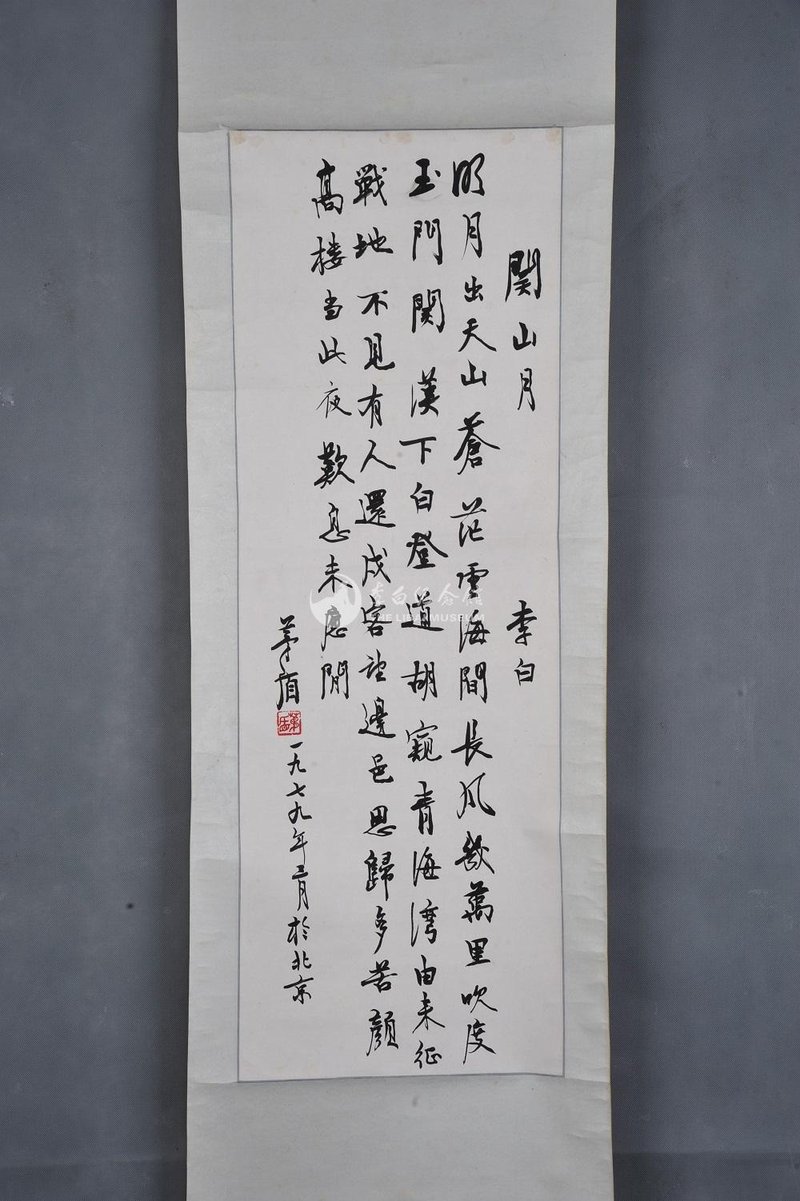 関山月 李白
明月出天山蒼茫雲海間長風幾萬里吹度
玉門関漢下白登道胡窺青海湾由来征
戰地不見有人還戍客望邊邑思歸多苦顏
高楼当此夜歎息未应閒
茅盾 一九七九年三月於北京
李白纪念馆
THE LIBAI MUSEUM